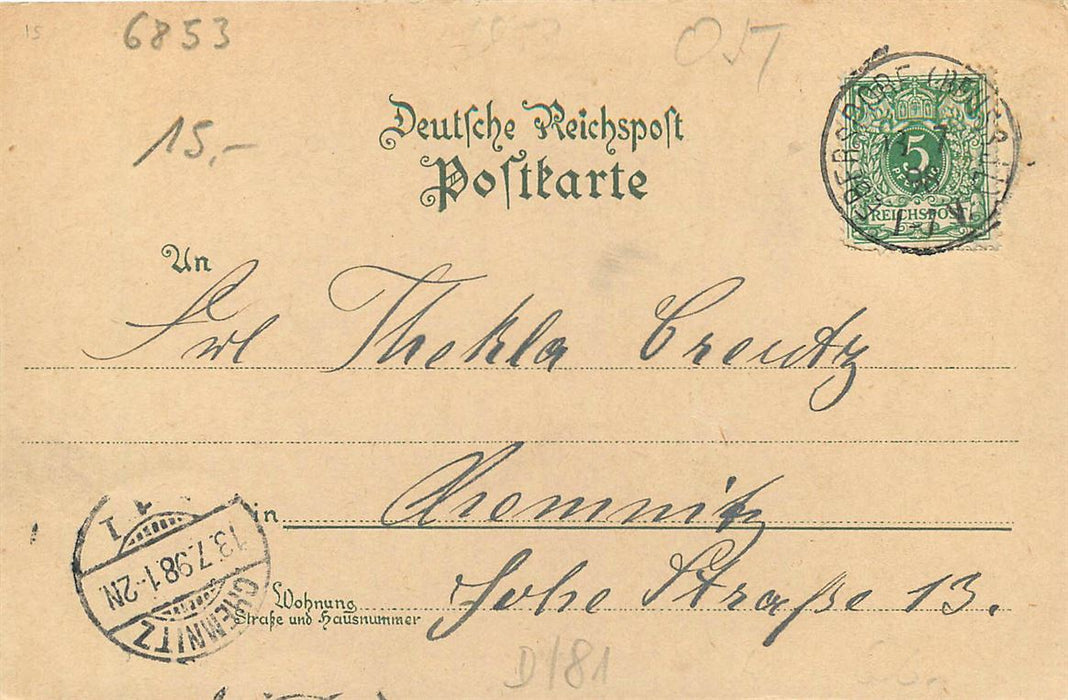 15
6853
OST
15,-
Deutsche Reichspost
Postkarte
EBERSDORF (REUSS J.L.)
13 7
98
7-8 V.
5
PFENNIG
REICHSPOST
An
Frl Thekla Creutz
in Chemnitz
Wohnung
Straße und Hausnummer
Hohe Straße 13.
CHEMNITZ
13.7.98.1-2N
1
D/81